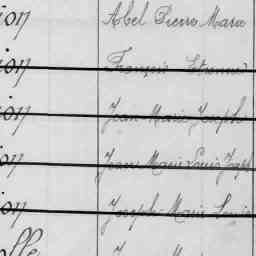 ion Abel Pierre Marie
ion François Etienne
ion Jean Marie Joseph
ion Jean Marie Louis Joseph
ion Joseph Marie Louis
olle